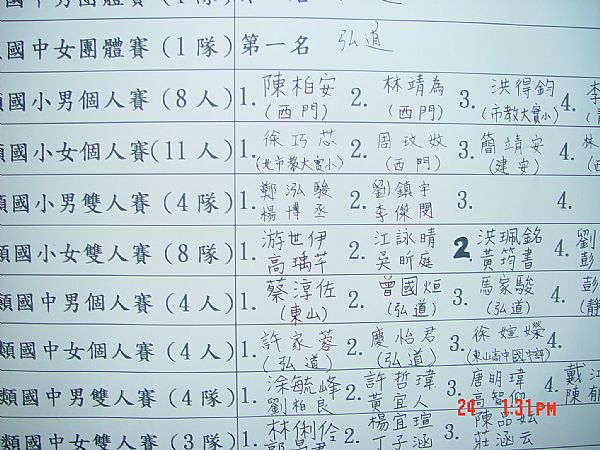 國中女團體賽(1隊) 第一名 弘道
類國小男個人賽(8人) 1. 陳柏安 (西門) 2. 林靖為 (西門) 3. 洪得鈞 (市教大實小) 4. 李
類國小女個人賽(11人) 1. 徐巧芯 (北市教大實小) 2. 周玟妏 (西門) 3. 簡靖安 (建安) 4. 林
類國小男雙人賽(4隊) 1. 鄭泓駿 楊博丞 2. 劉鎮宇 李傑閔 3. 4.
類國小女雙人賽(8隊) 1. 游世伊 高瑀芊 2. 江詠晴 吳昕庭 2 洪珮銘 黃筠書 4. 劉 彭
類國中男個人賽(4人) 1. 蔡淳佐 (東山) 2. 曾國烜 (弘道) 3. 馬家駿 (弘道) 4. 彭 (靜
類國中女個人賽(4人) 1. 許家蓉 (弘道) 2. 慶怡君 (弘道) 3. 徐媗嬫 (東山高中國中部) 4.
類國中男雙人賽(4隊) 1. 涂毓峰 劉柏良 2. 許哲瑋 黃宜人 3. 唐明瑋 高智仰 4. 戴江 陳郁
類國中女雙人賽(3隊) 1. 林俐伶 2. 楊宜瑄 丁子涵 3. 陳品妘 莊涵云
24 1:31PM